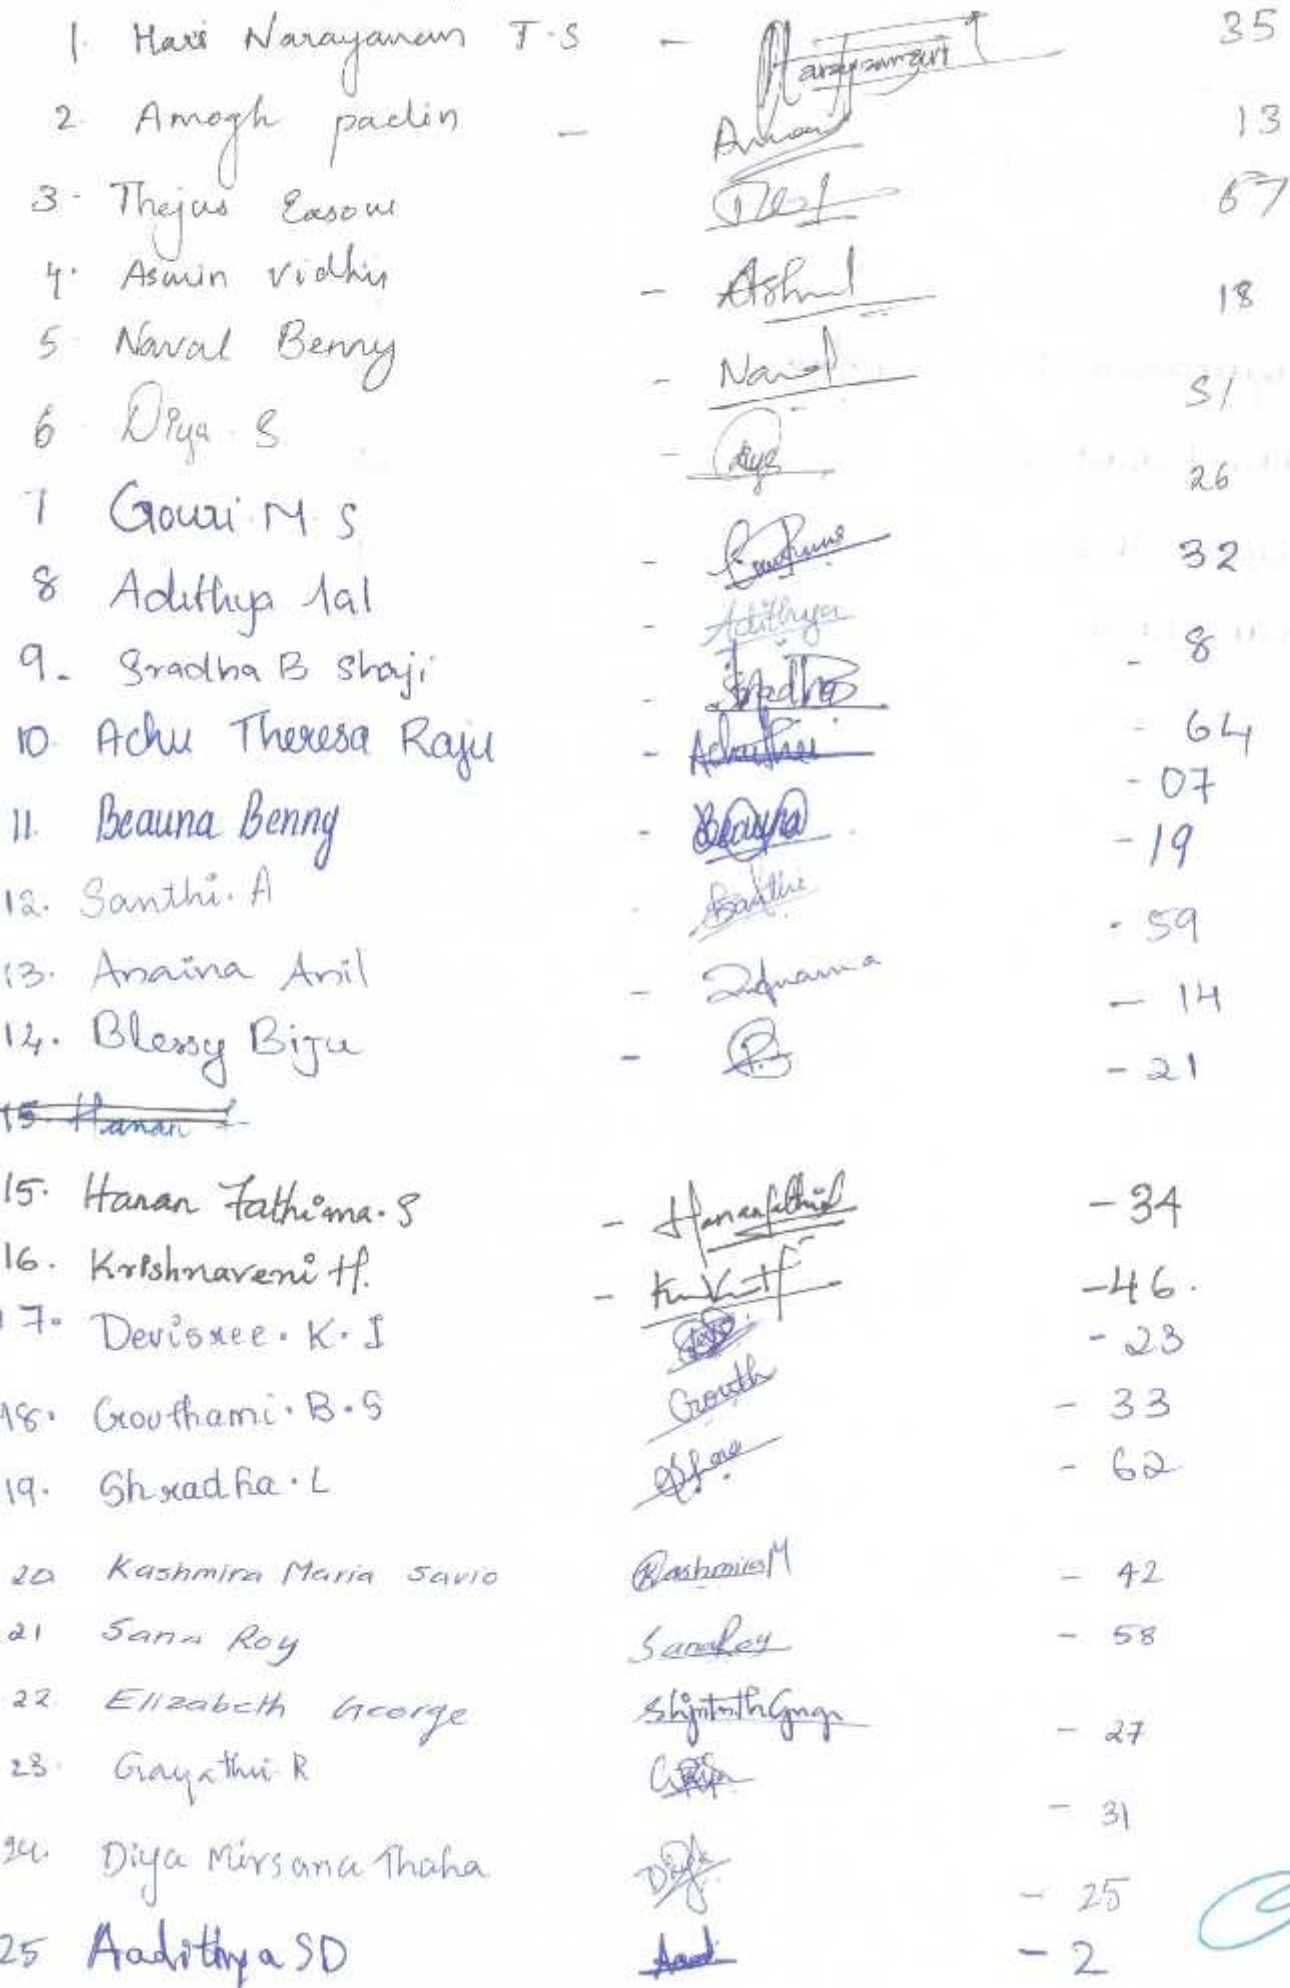 1. Hari Narayanan T.S - Narayanan 35
2. Amogh - 13
3. Thejus Easow 67
4. Aswin vidhu - Ashul 18
5 Naval Benny - Naval 51
6 Diya S - Diya 26
7 Gouri M S - 32
8 Adithya lal - Adithya - 8
9. Sradha B Shaji - Sradha - 64
10. Achu Theresa Raju - - 07
11. Beauna Benny - Beauna - 19
12. Santhi. A - Santhi - 59
13. Anaina Anil - - 14
14. Blessy Biju - - 21
15 Hanan
15. Hanan Fathima. S - Hananfathima - 34
16. Krishnaveni H. - - 46.
17. Devisree. K. I - 23
18. Gouthami. B. S Gouth - 33
19. Shradha. L - 62
20 Kashmira Maria Savio Kashmira M - 42
21 Sana Roy Sana Roy - 58
22 Elizabeth George - 27
23 Gayathri R - 31
24. Diya Mirsana Thaha Diya - 25
25 Aadithya SD Aadi - 2